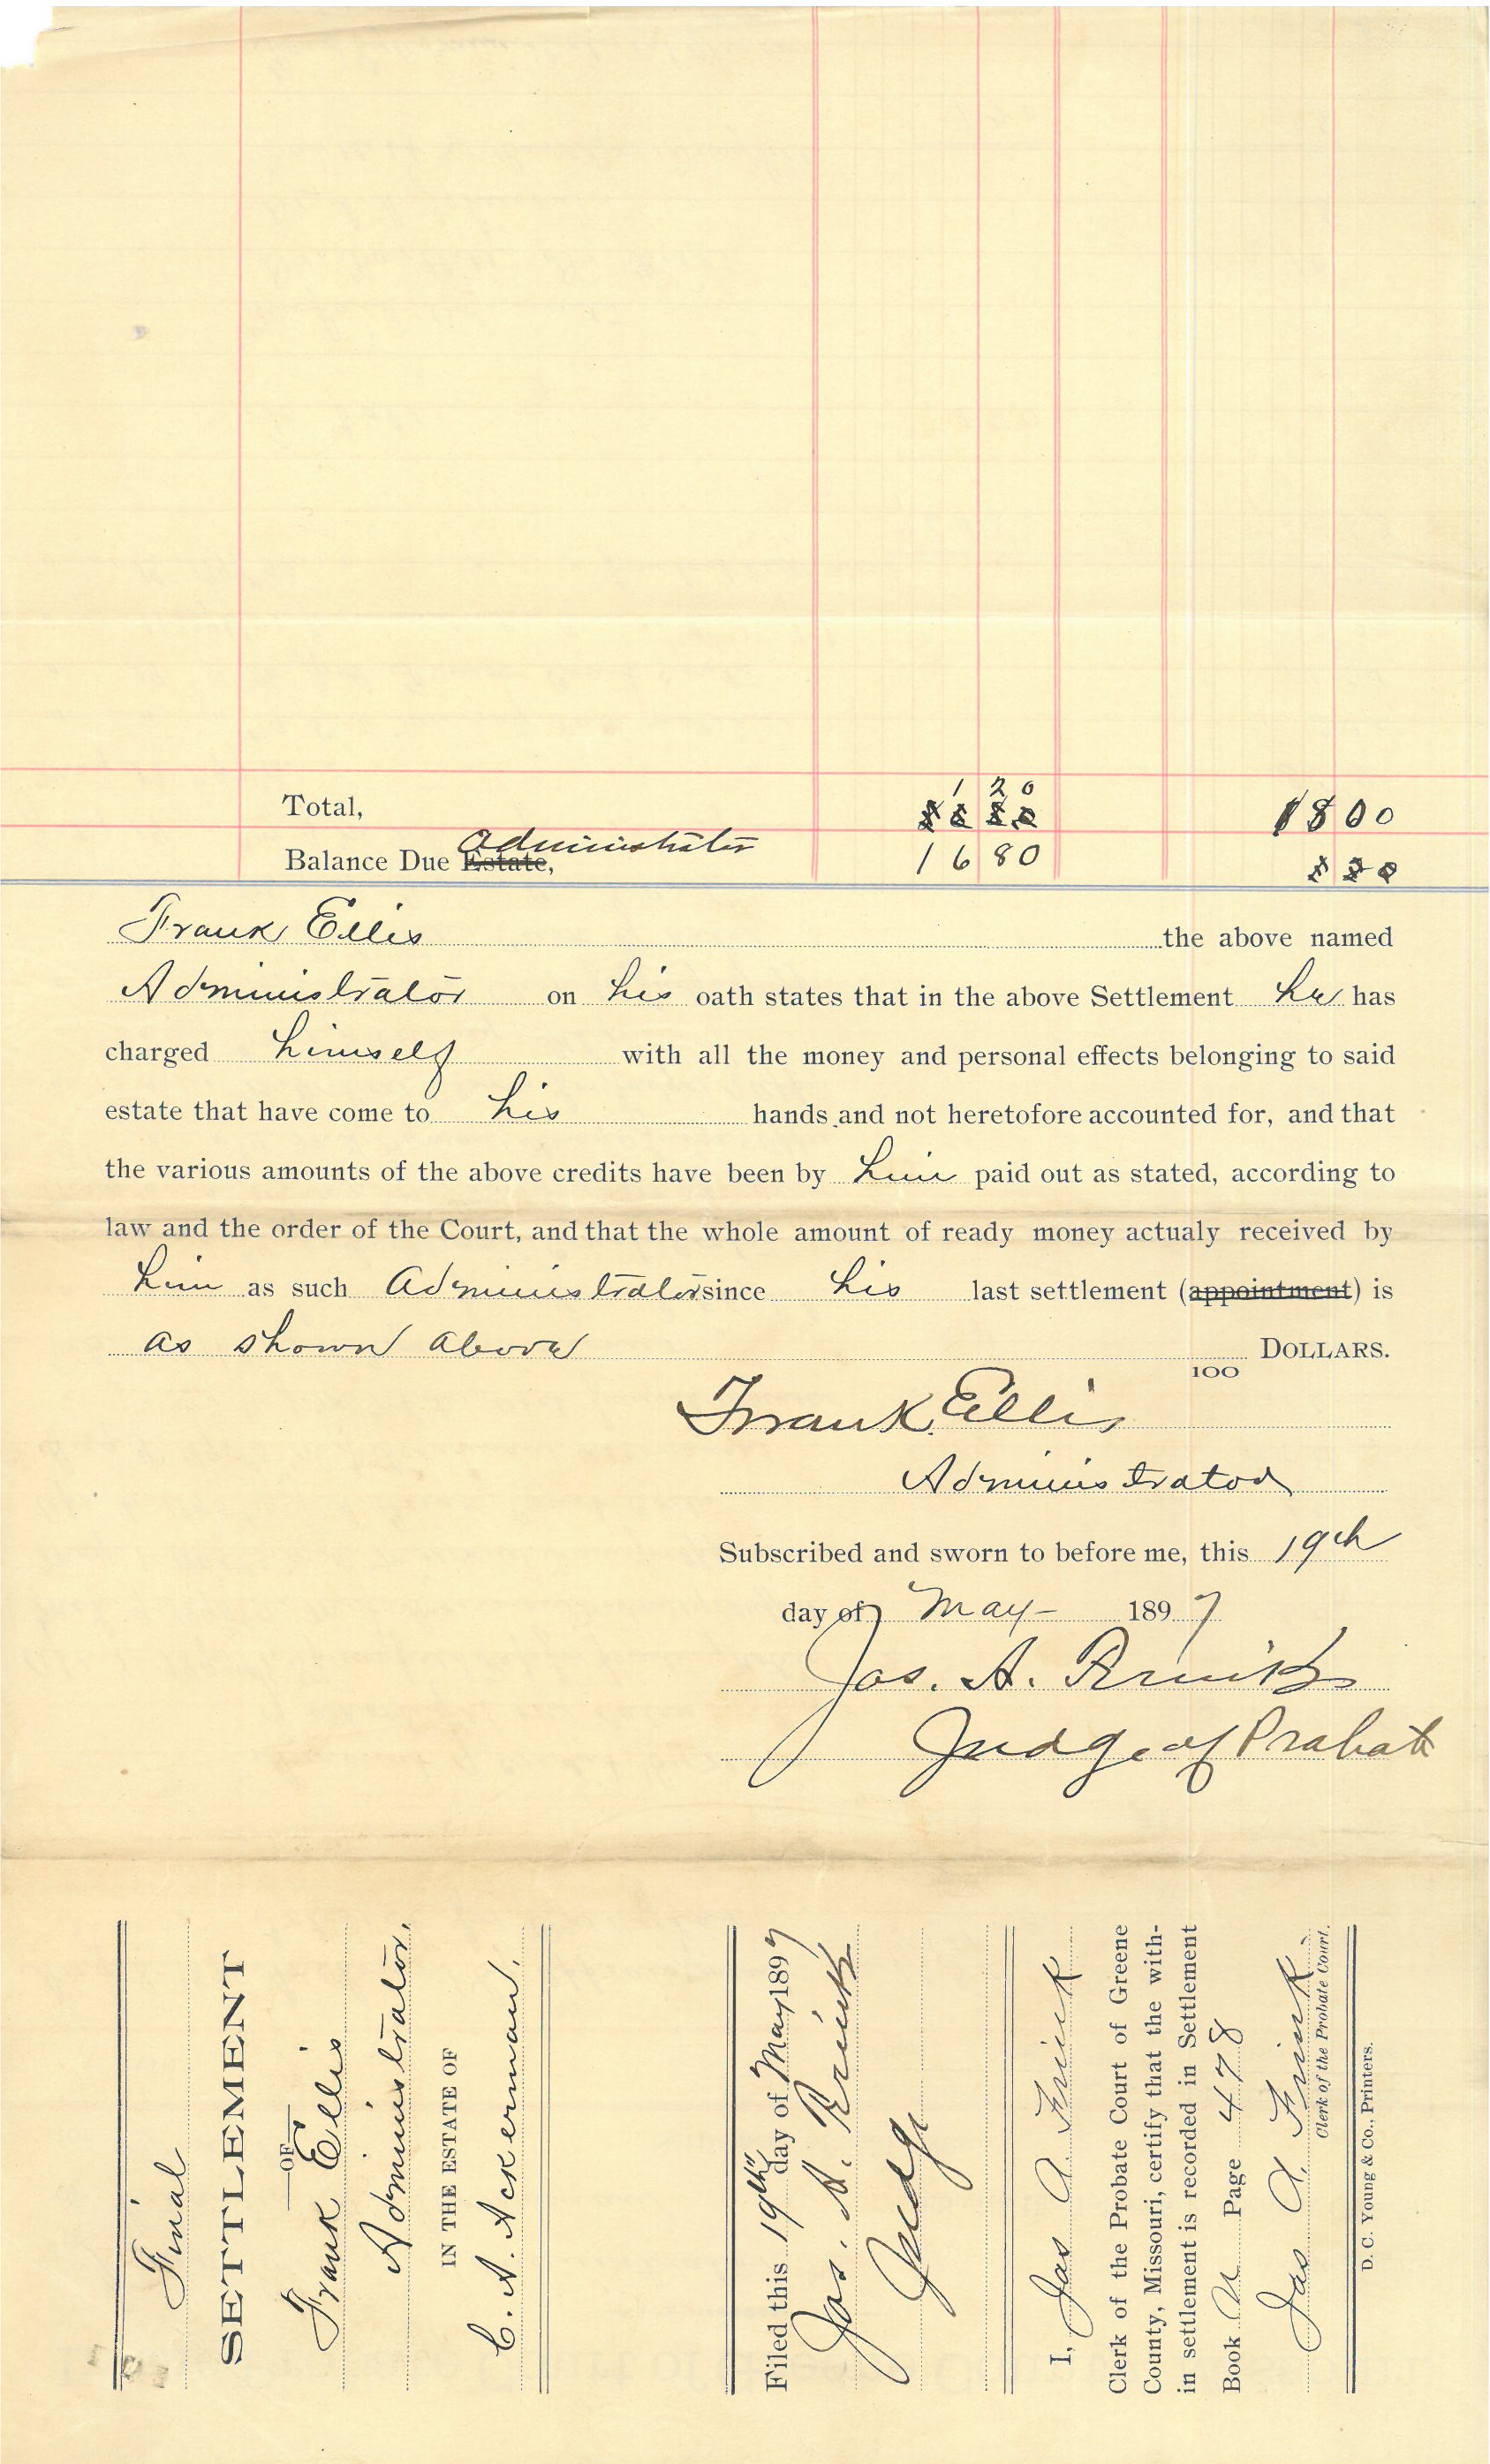 1 20
Total, 1800
Administrator
Balance Due Estate, 16 80
Frank Ellis the above named
Administrator on his oath states that in the above Settlement he has
charged himself with all the money and personal effects belonging to said
estate that have come to his hands and not heretofore accounted for, and that
the various amounts of the above credits have been by him paid out as stated, according to
law and the order of the Court, and that the whole amount of ready money actualy received by
him as such Administrator since his last settlement (appointment) is
as shown above DOLLARS.
100
Frank Ellis
Administrator
Subscribed and sworn to before me, this 19th
day of May 1897
Jas. A. Frink
Judge of Probate
Final
SETTLEMENT
OF
Frank Ellis
Administrator.
IN THE ESTATE OF
C. A. Ackerman.
Filed this 19th day of May 1897
Jas. A. Frink
Judge
I, Jas A Frink
Clerk of the Probate Court of Greene
County, Missouri, certify that the with-
in settlement is recorded in Settlement
Book U Page 478
Jas A. Frink
Clerk of the Probate Court.
D. C. Young & Co., Printers.